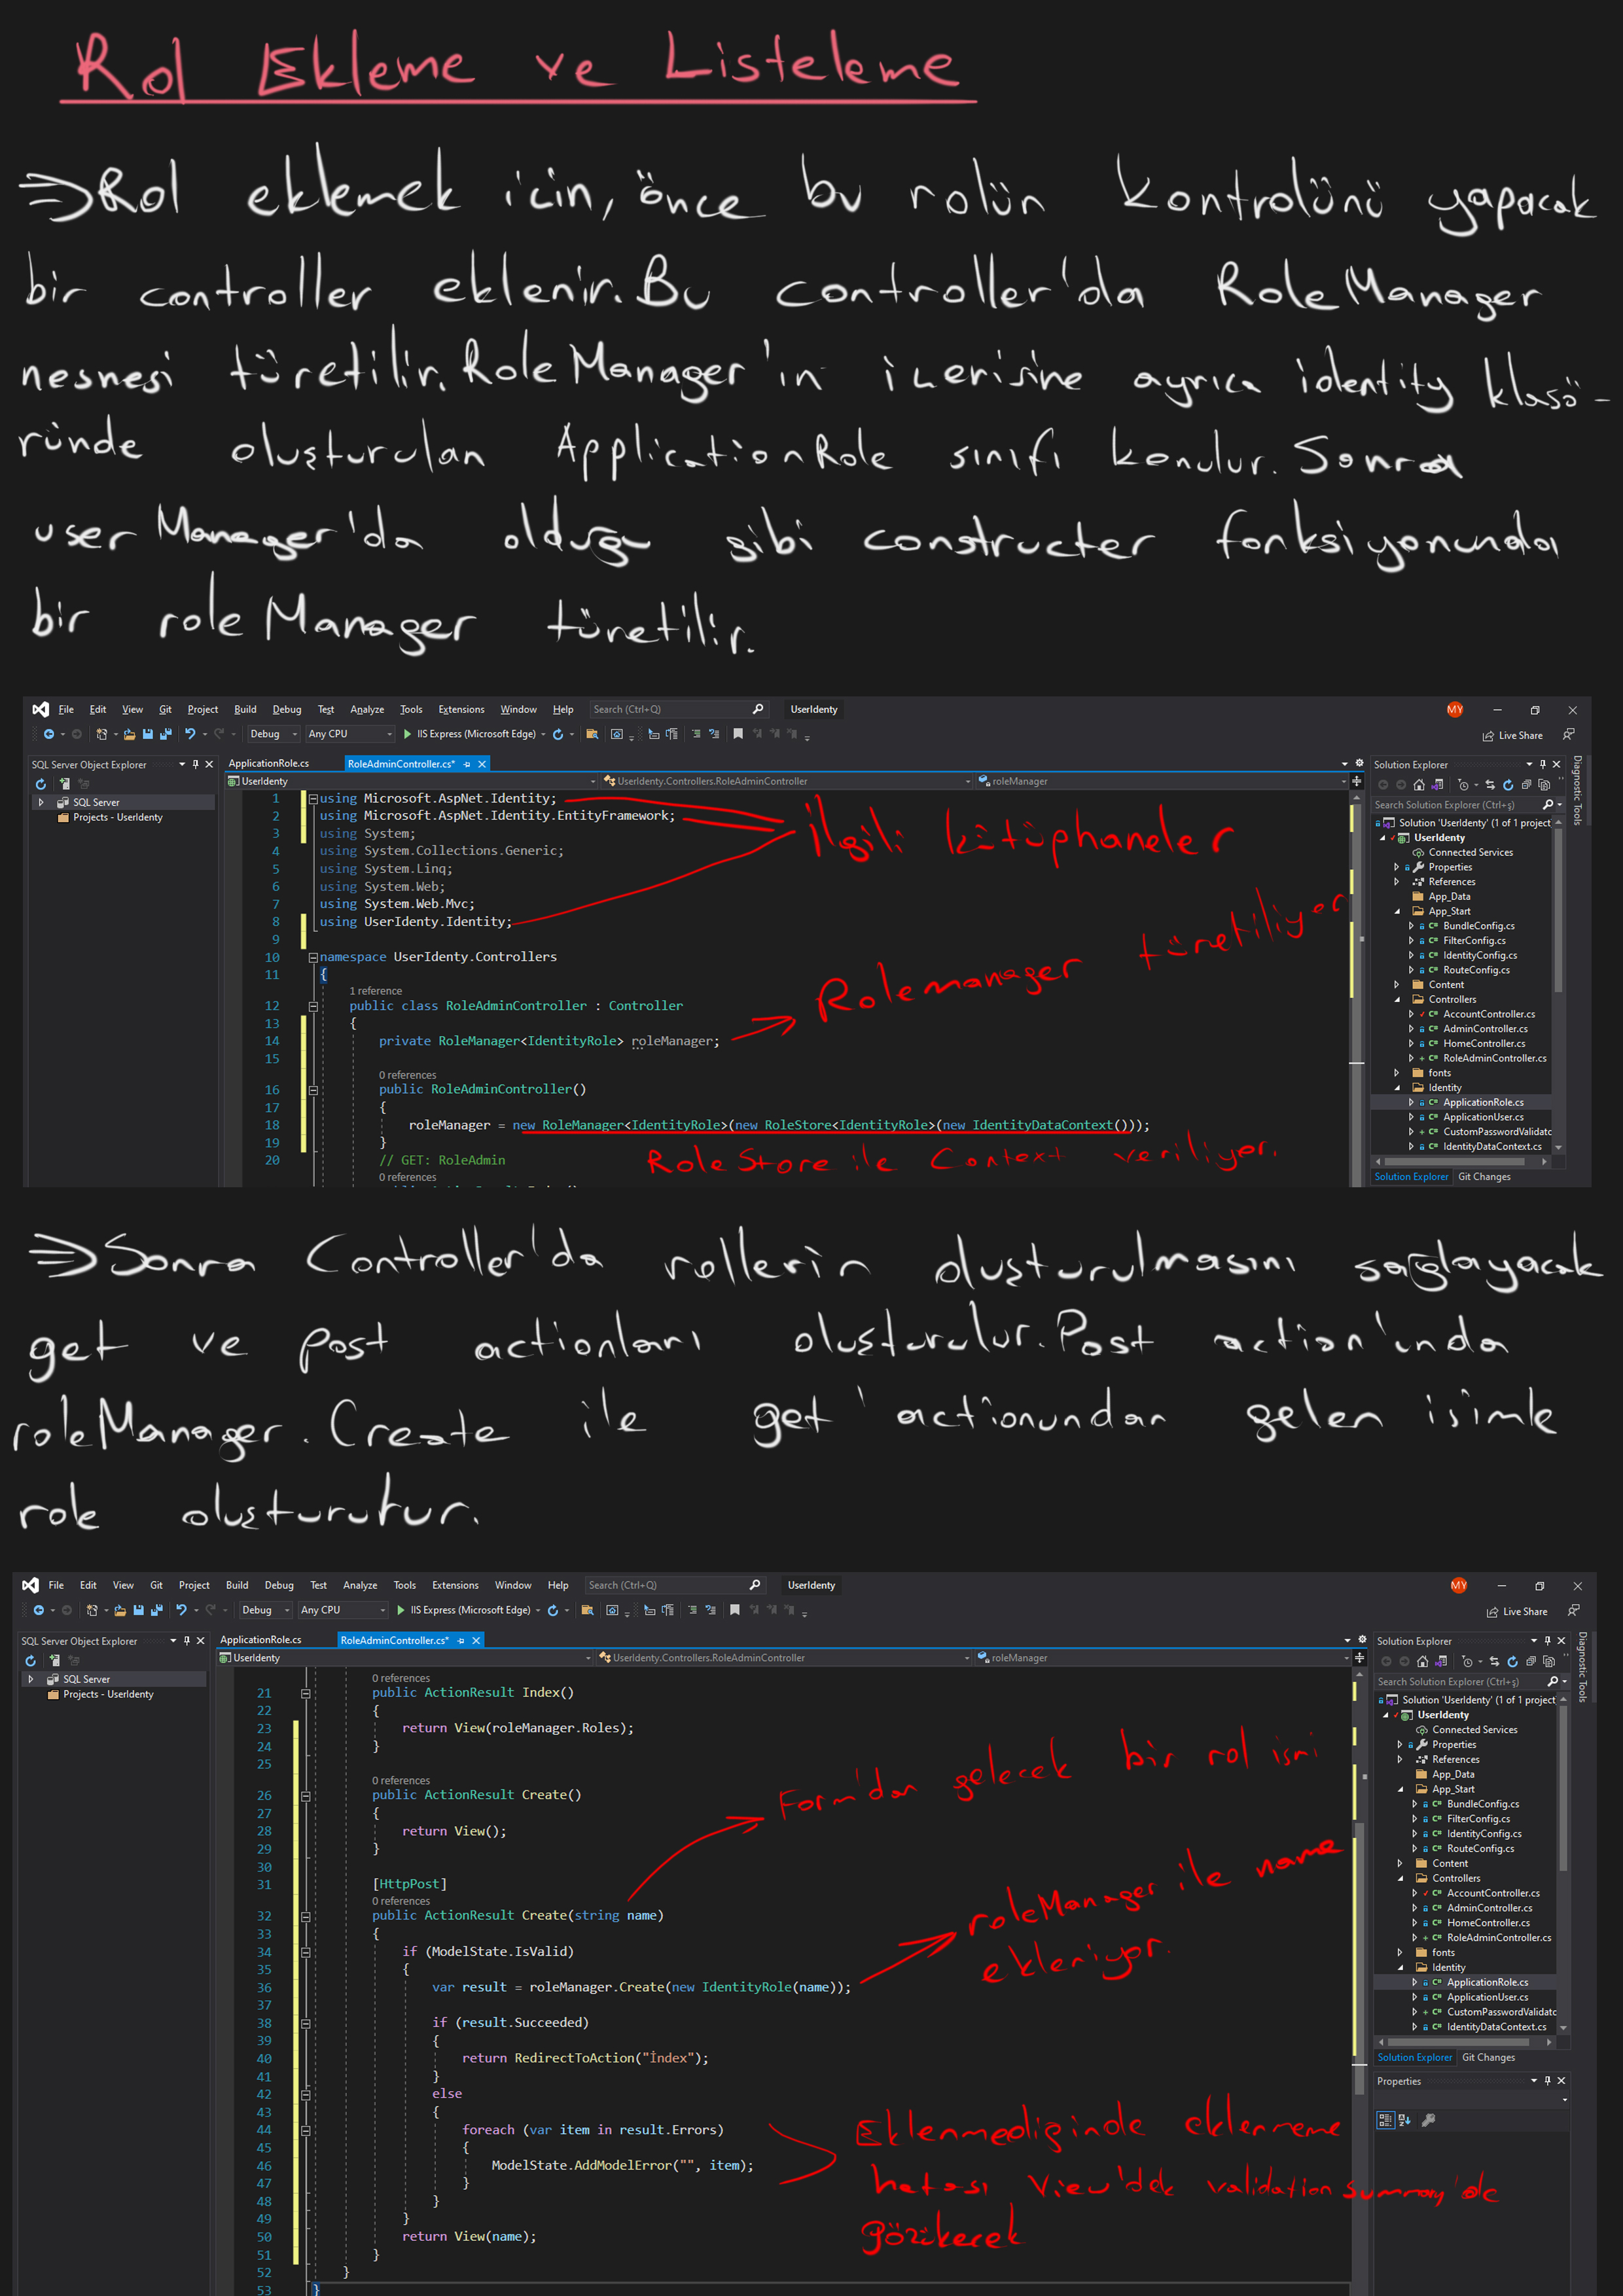 Rol Ekleme ve Listeleme
=>Rol eklemek için, önce bu rolün kontrolünü yapacak
bir controller eklenir. Bu controller'da RoleManager
nesnesi türetilir. RoleManager'ın içerisine ayrıca identity klasö-
ründe oluşturulan ApplicationRole sınıfı konulur. Sonra
userManager'da olduğu gibi constructer fonksiyonunda
bir roleManager türetilir.
File Edit View Git Project Build Debug Test Analyze Tools Extensions Window Help Search (Ctrl+Q) UserIdenty MY
Debug Any CPU IIS Express (Microsoft Edge) Live Share
SQL Server Object Explorer
SQL Server
Projects - UserIdenty
ApplicationRole.cs RoleAdminController.cs*
UserIdenty UserIdenty.Controllers.RoleAdminController roleManager
1 using Microsoft.AspNet.Identity;
2 using Microsoft.AspNet.Identity.EntityFramework;
3 using System;
4 using System.Collections.Generic;
5 using System.Linq;
6 using System.Web;
7 using System.Web.Mvc;
8 using UserIdenty.Identity;
9
10 namespace UserIdenty.Controllers
11 {
1 reference
12 public class RoleAdminController : Controller
13 {
14 private RoleManager<IdentityRole> roleManager;
15
0 references
16 public RoleAdminController()
17 {
18 roleManager = new RoleManager<IdentityRole>(new RoleStore<IdentityRole>(new IdentityDataContext()));
19 }
20 // GET: RoleAdmin
0 references
İlgili kütüphaneler
Rolemanager türetiliyor
RoleStore ile Context veriliyor.
Solution Explorer
Search Solution Explorer (Ctrl+ş)
Solution 'UserIdenty' (1 of 1 project
UserIdenty
Connected Services
Properties
References
App_Data
App_Start
BundleConfig.cs
FilterConfig.cs
IdentityConfig.cs
RouteConfig.cs
Content
Controllers
AccountController.cs
AdminController.cs
HomeController.cs
RoleAdminController.cs
fonts
Identity
ApplicationRole.cs
ApplicationUser.cs
CustomPasswordValidatc
IdentityDataContext.cs
Solution Explorer Git Changes
Diagnostic Tools
=>Sonra Controller'da rollerin oluşturulmasını sağlayacak
get ve post actionları oluşturulur. Post action'unda
roleManager.Create ile get actionundan gelen isimle
role oluşturutur.
File Edit View Git Project Build Debug Test Analyze Tools Extensions Window Help Search (Ctrl+Q) UserIdenty MY
Debug Any CPU IIS Express (Microsoft Edge) Live Share
SQL Server Object Explorer
SQL Server
Projects - UserIdenty
ApplicationRole.cs RoleAdminController.cs*
UserIdenty UserIdenty.Controllers.RoleAdminController roleManager
0 references
21 public ActionResult Index()
22 {
23 return View(roleManager.Roles);
24 }
25
0 references
26 public ActionResult Create()
27 {
28 return View();
29 }
30
31 [HttpPost]
0 references
32 public ActionResult Create(string name)
33 {
34 if (ModelState.IsValid)
35 {
36 var result = roleManager.Create(new IdentityRole(name));
37
38 if (result.Succeeded)
39 {
40 return RedirectToAction("İndex");
41 }
42 else
43 {
44 foreach (var item in result.Errors)
45 {
46 ModelState.AddModelError("", item);
47 }
48 }
49 }
50 return View(name);
51 }
52 }
53 }
Form'dan gelecek bir rol ismi
roleManager ile name
ekleniyor.
Eklenmediginde eklenmeme
hatası View'dek validation summary'de
gözükecek
Solution Explorer
Search Solution Explorer (Ctrl+ş)
Solution 'UserIdenty' (1 of 1 project
UserIdenty
Connected Services
Properties
References
App_Data
App_Start
BundleConfig.cs
FilterConfig.cs
IdentityConfig.cs
RouteConfig.cs
Content
Controllers
AccountController.cs
AdminController.cs
HomeController.cs
RoleAdminController.cs
fonts
Identity
ApplicationRole.cs
ApplicationUser.cs
CustomPasswordValidatc
IdentityDataContext.cs
Solution Explorer Git Changes
Properties
Diagnostic Tools